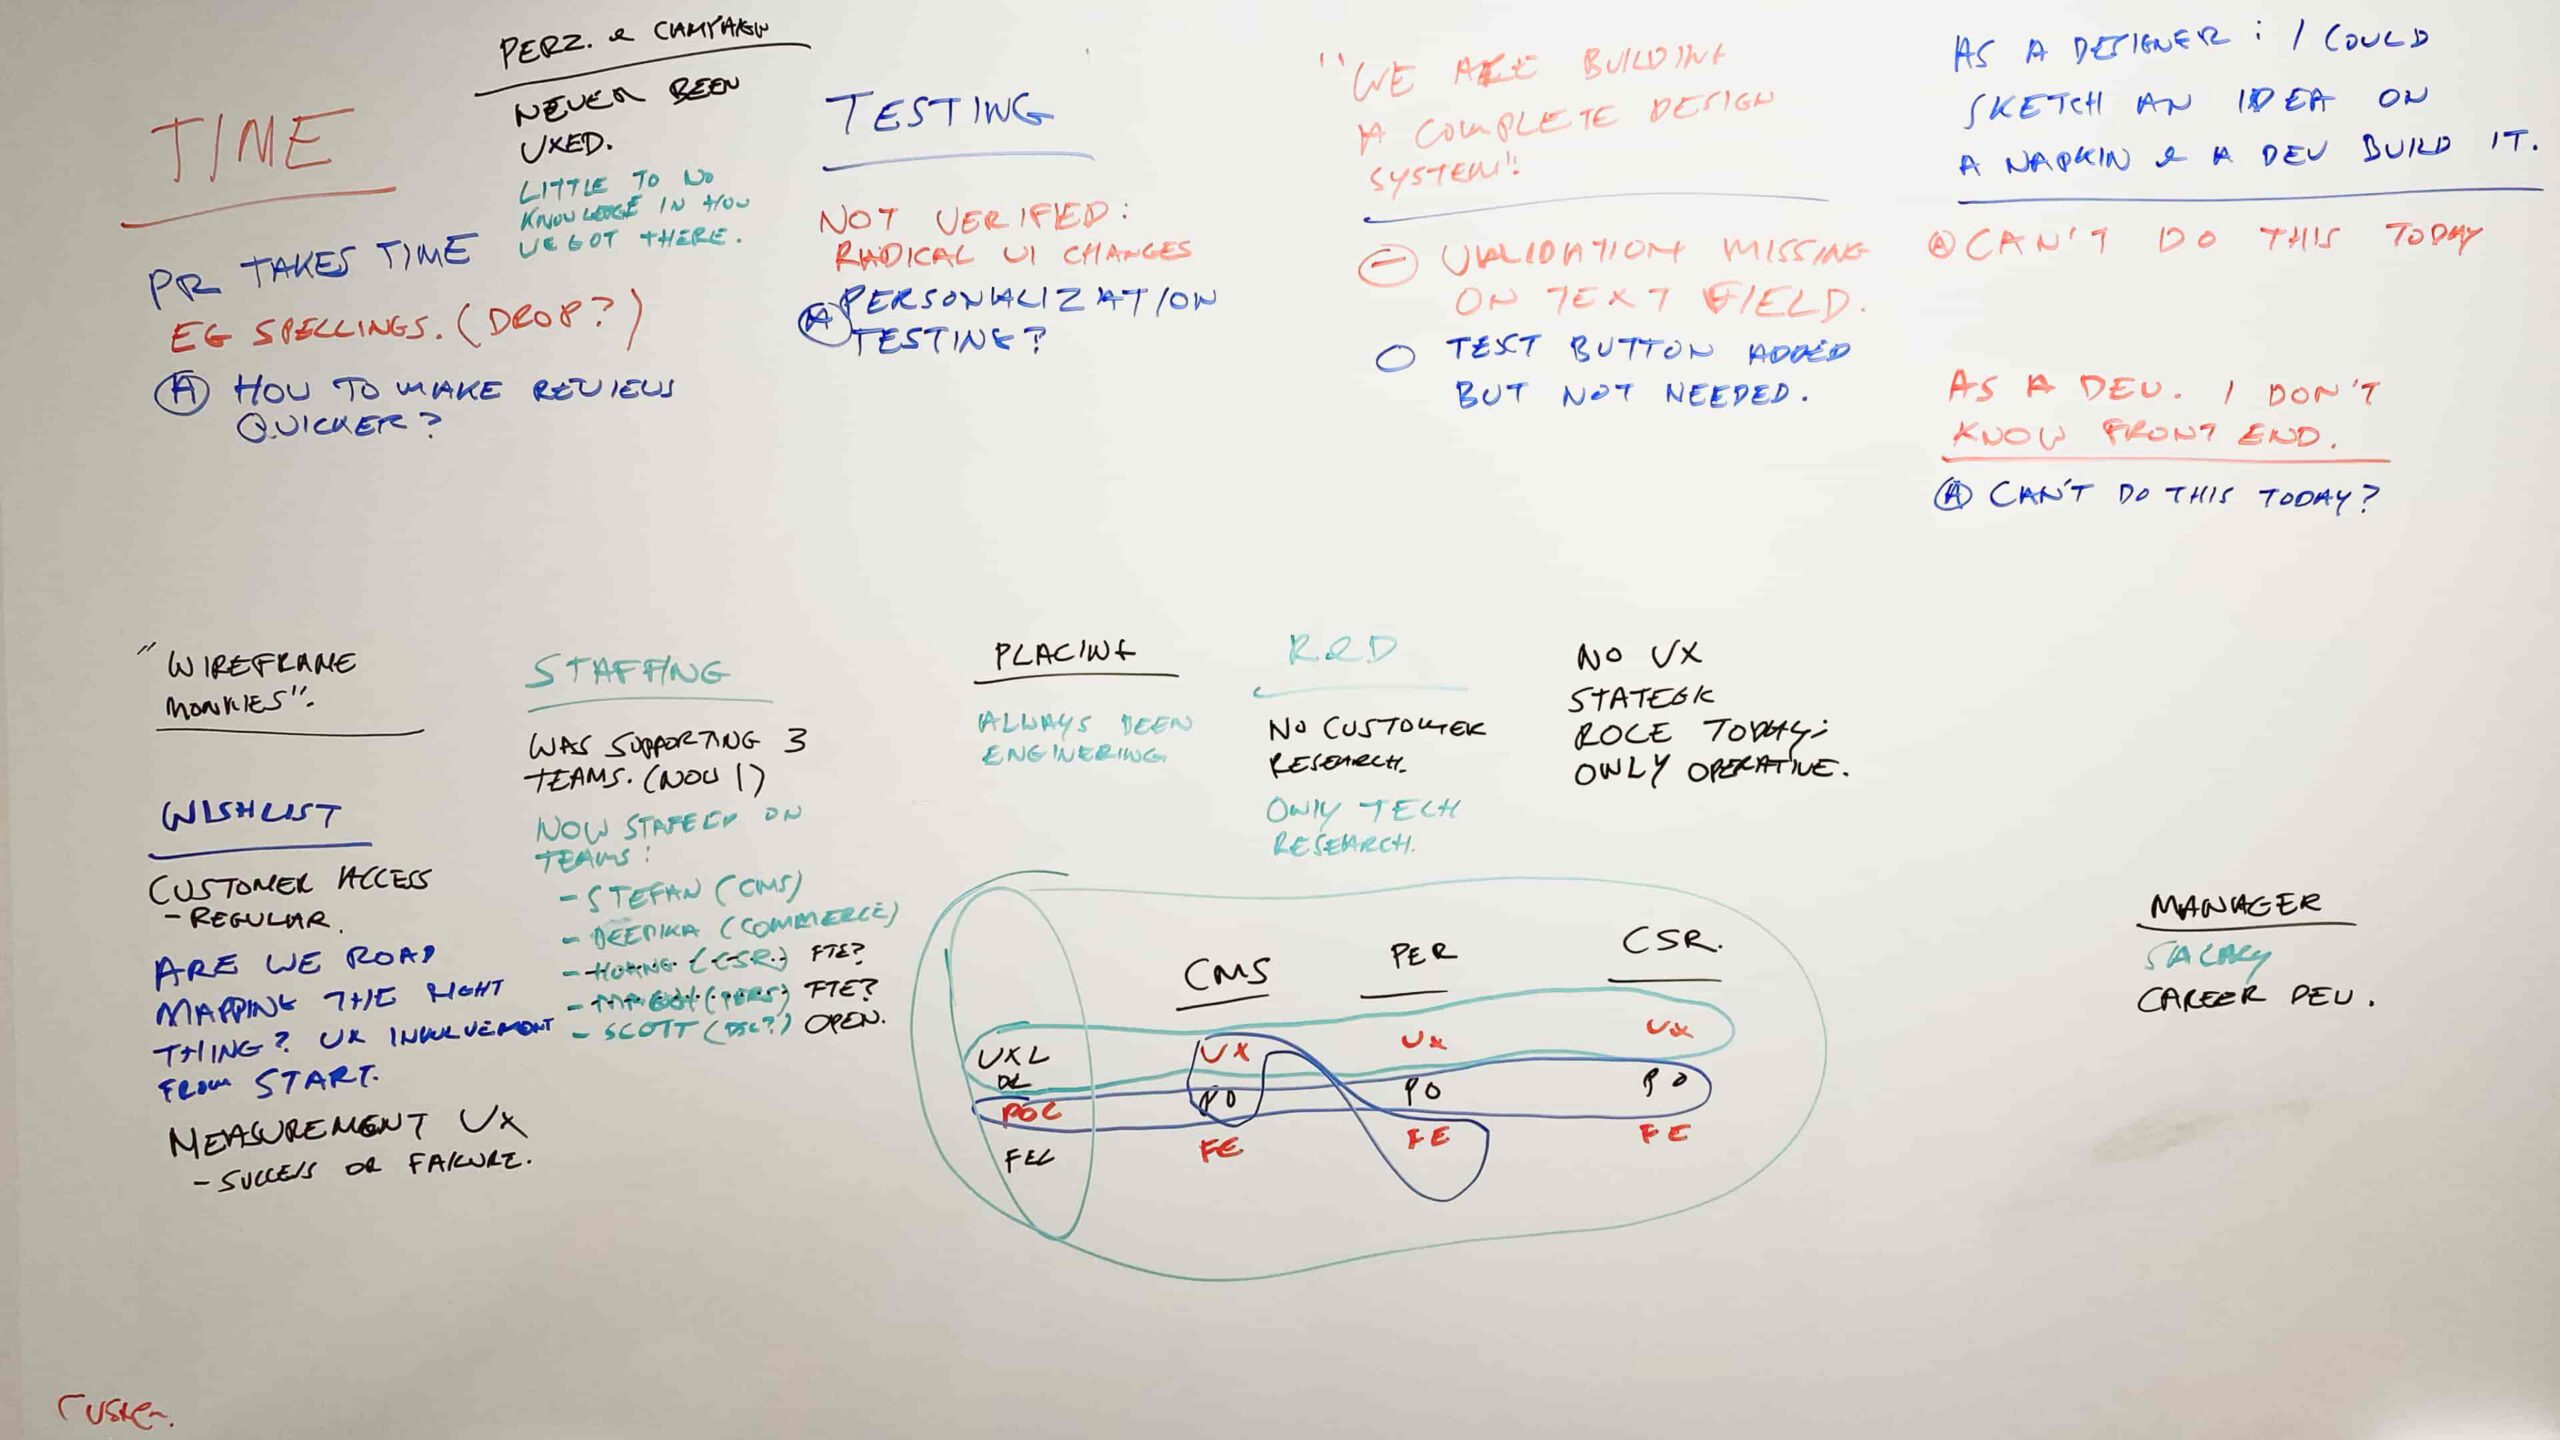 TIME
PR TAKES TIME
EG SPELLINGS. (DROP?)
(A) HOW TO MAKE REVIEWS
QUICKER?
PERZ. & CAMPAIGN
NEVER BEEN
UXED.
LITTLE TO NO
KNOWLEDGE IN HOW
WE GOT THERE.
TESTING
NOT VERIFIED:
RADICAL UI CHANGES
(A) PERSONALIZATION
TESTING?
"WE ARE BUILDING
A COMPLETE DESIGN
SYSTEM":
VALIDATION MISSING
ON TEXT FIELD.
TEXT BUTTON ADDED
BUT NOT NEEDED.
AS A DESIGNER: I COULD
SKETCH AN IDEA ON
A NAPKIN & A DEV BUILD IT.
(A) CAN'T DO THIS TODAY
AS A DEV. I DON'T
KNOW FRONT END.
(A) CAN'T DO THIS TODAY?
"WIREFRAME
MONKIES":
WISHLIST
CUSTOMER ACCESS
- REGULAR.
ARE WE ROAD
MAPPING THE RIGHT
THING? UX INVOLVEMENT
FROM START.
MEASUREMENT UX
- SUCCESS OR FAILURE.
STAFFING
WAS SUPPORTING 3
TEAMS. (NOW 1)
NOW STAFFED ON
TEAMS:
- STEFAN (CMS)
- DEEPIKA (COMMERCE)
- HOANG (CSR) FTE?
- (PERS) FTE?
- SCOTT (DSC?) OPEN.
PLACING
ALWAYS BEEN
ENGINERING
R&D
NO CUSTOMER
RESEARCH.
ONLY TECH
RESEARCH.
NO UX
STATEGK
ROLE TODAY;
ONLY OPERATIVE.
CMS PER CSR.
UXL UX UX UX
OR
POL PO PO PO
FEL FE FE FE
MANAGER
SALARY
CAREER DEV.